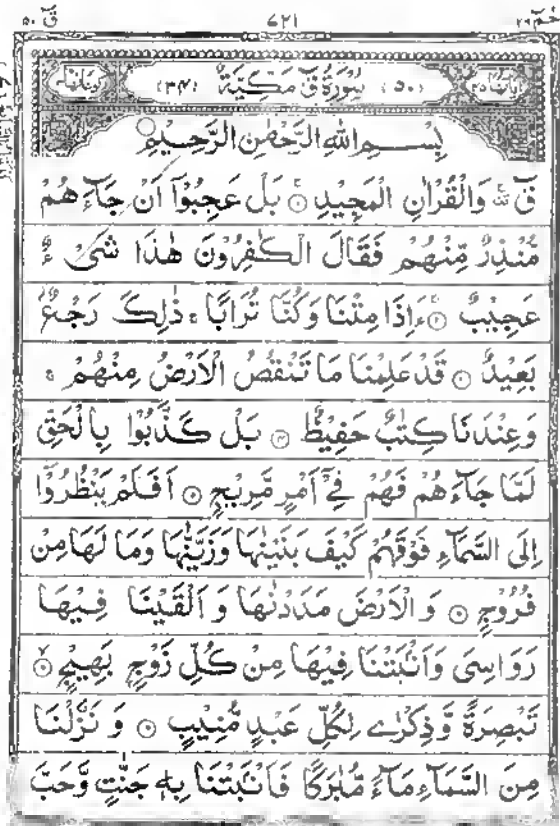 حٰمٓ ٢٦ ٦٢١ قٓ ٥٠
(٥٠) سُوْرَةُ قٓ مَكِّيَّةٌ (٣٤)
بِسْمِ اللهِ الرَّحْمٰنِ الرَّحِيْمِ
قٓ ۚ وَالْقُرْاٰنِ الْمَجِيْدِ ۝ بَلْ عَجِبُوْٓا اَنْ جَآءَهُمْ
مُّنْذِرٌ مِّنْهُمْ فَقَالَ الْكٰفِرُوْنَ هٰذَا شَیْءٌ
عَجِيْبٌ ۝ ءَاِذَا مِتْنَا وَكُنَّا تُرَابًا ۚ ذٰلِكَ رَجْعٌۢ
بَعِيْدٌ ۝ قَدْ عَلِمْنَا مَا تَنْقُصُ الْاَرْضُ مِنْهُمْ ۚ
وَعِنْدَنَا كِتٰبٌ حَفِيْظٌ ۝ بَلْ كَذَّبُوْا بِالْحَقِّ
لَمَّا جَآءَهُمْ فَهُمْ فِیْٓ اَمْرٍ مَّرِيْجٍ ۝ اَفَلَمْ يَنْظُرُوْٓا
اِلَی السَّمَآءِ فَوْقَهُمْ كَيْفَ بَنَيْنٰهَا وَزَيَّنّٰهَا وَمَا لَهَا مِنْ
فُرُوْجٍ ۝ وَالْاَرْضَ مَدَدْنٰهَا وَاَلْقَيْنَا فِيْهَا
رَوَاسِیَ وَاَنْۢبَتْنَا فِيْهَا مِنْ كُلِّ زَوْجٍۭ بَهِيْجٍ ۝
تَبْصِرَةً وَّذِكْرٰی لِكُلِّ عَبْدٍ مُّنِيْبٍ ۝ وَنَزَّلْنَا
مِنَ السَّمَآءِ مَآءً مُّبٰرَكًا فَاَنْۢبَتْنَا بِهٖ جَنّٰتٍ وَّحَبَّ